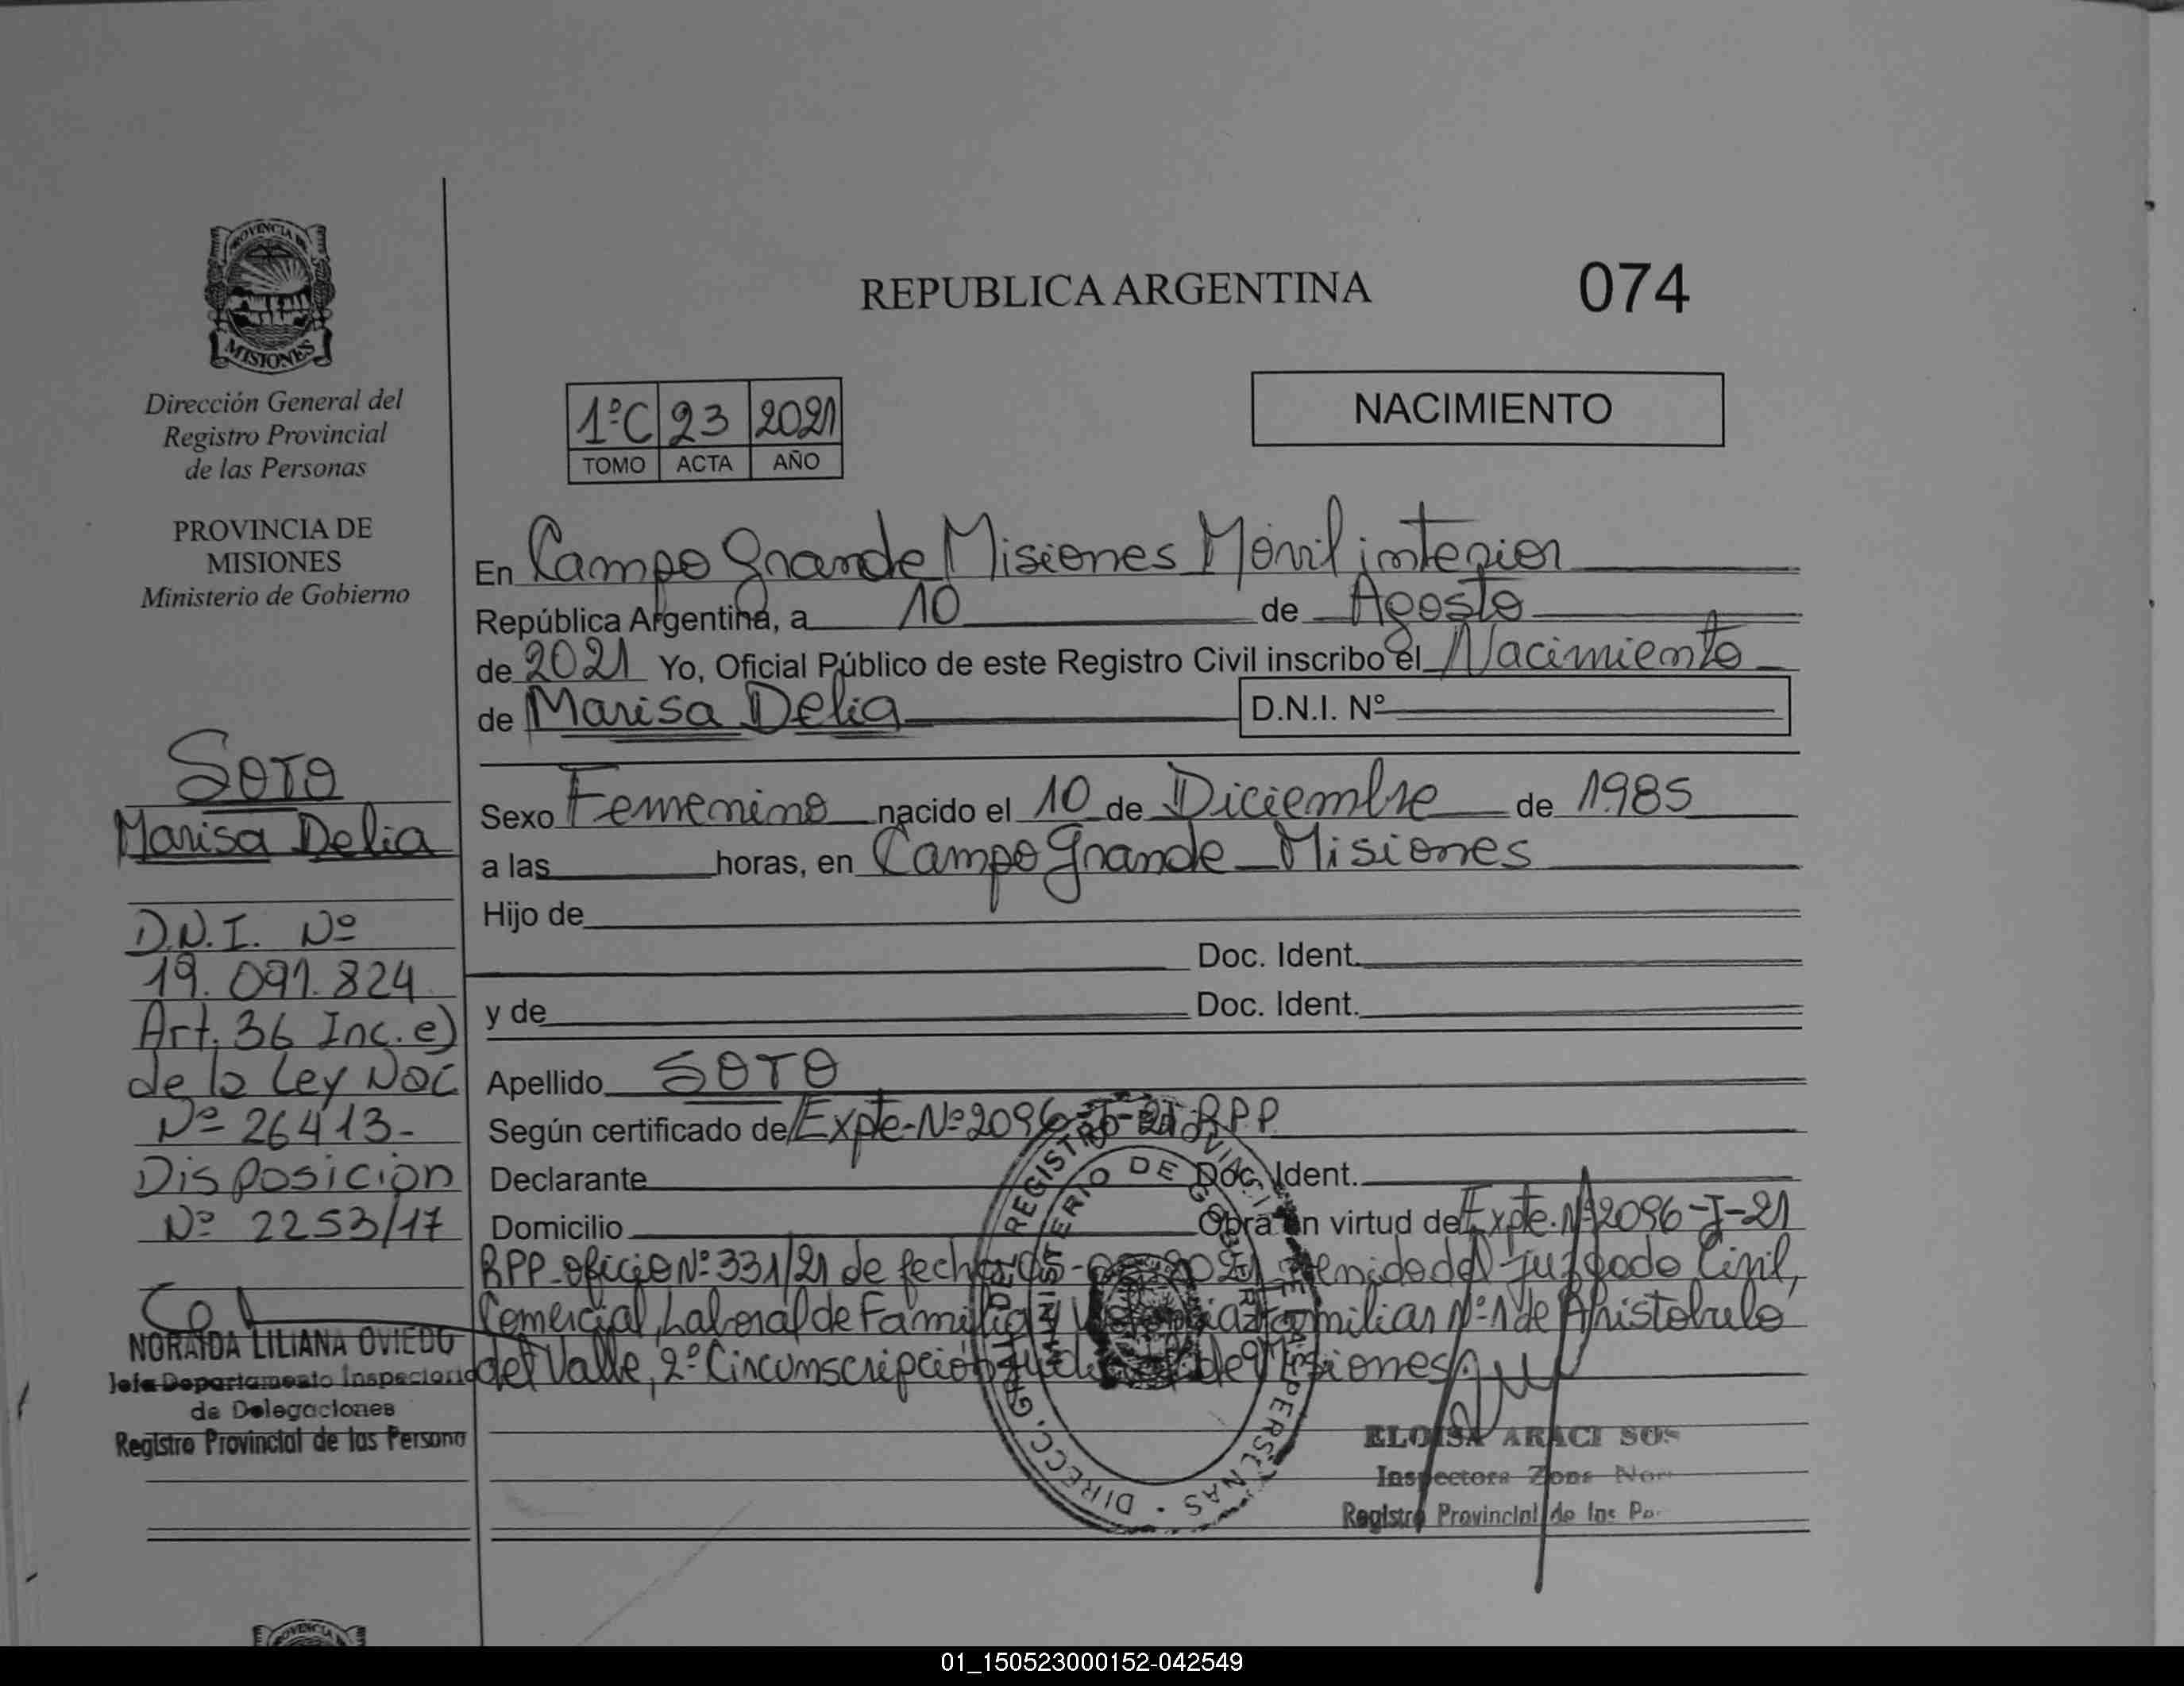 PROVINCIA DE
MISIONES
Dirección General del
Registro Provincial
de las Personas
PROVINCIA DE
MISIONES
Ministerio de Gobierno
SOTO
Marisa Delia
D.N.I. Nº
19.091.824
Art. 36 Inc. e)
de la Ley Nac
Nº 26413-
Disposición
Nº 2253/17
NORAIDA LILIANA OVIEDO
Jefa Departamento Inspectoria
de Delegaciones
Registro Provincial de las Persona
REPUBLICA ARGENTINA 074
NACIMIENTO
1ºC 23 2021
TOMO ACTA AÑO
En Campo Grande Misiones Móvil interior
República Argentina, a 10 de Agosto
de 2021 Yo, Oficial Público de este Registro Civil inscribo el Nacimiento
de Marisa Delia D.N.I. Nº
Sexo Femenino nacido el 10 de Diciembre de 1985
a las horas, en Campo Grande Misiones
Hijo de
Doc. Ident.
y de Doc. Ident.
Apellido SOTO
Según certificado de Expte-Nº2096-J-21 RPP
Declarante Doc. Ident.
Domicilio Obra en virtud de Expte. Nº2096-J-21
RPP-oficio Nº331/21 de fecha del Juzgado Civil,
Comercial, Laboral de Familia y Violencia Familiar Nº1 de Aristobulo
del Valle, 2º Circunscripción Judicial de Misiones
REGISTRO PROVINCI
MINISTERIO DE GOBIER
DIRECC. G PERSONAS
ELOISA ARACI SOS
Inspectora Zona Nor
Registro Provincial de las Pe
01_150523000152-042549